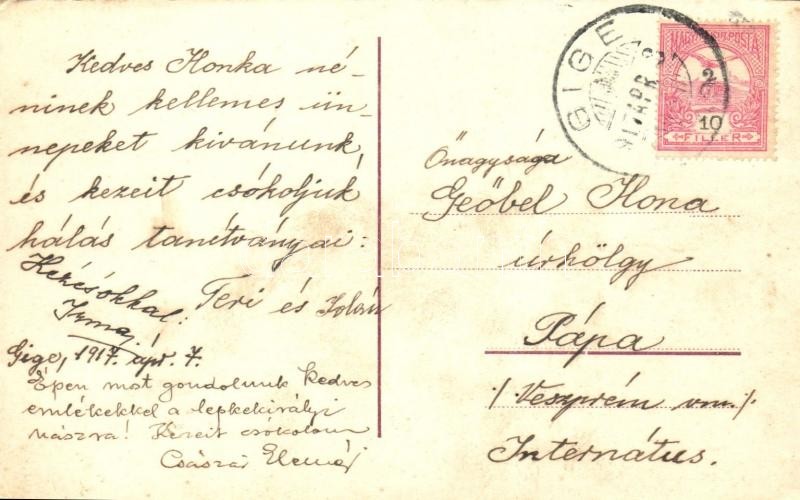 Kedves Ilonka né-
ninek kellemes ün-
nepeket kivánunk
és kezeit csókoljuk
hálás tanítványai:
Teri és Zoltán
Kézcsókkal:
Irma
Gige, 1917. ápr. 7.
Épen most gondolunk kedves
emlékekkel a lepkekirályi
nászra! Kezeit csókolom
Császár Elemér
GIGE
917 APR
MAGYAR KIR. POSTA
10
FILLÉR
Őnagysága
Geőbel Ilona
úrhölgy
Pápa
/Veszprém vm./
Internátus.